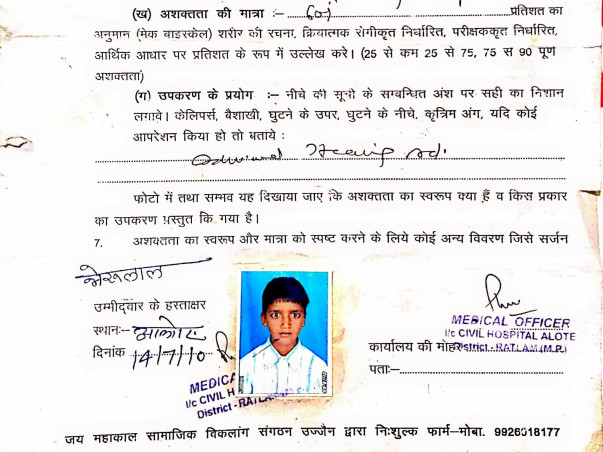 (ख) अशक्तता की मात्रा :- 60% प्रतिशत का
अनुमान (मेक वाइस्केल) शरीर की रचना, क्रियात्मक रोगीकृत निर्धारित, परीक्षककृत निर्धारित,
आर्थिक आधार पर प्रतिशत के रूप में उल्लेख करे। (25 से कम 25 से 75, 75 स 90 पूण
अशक्तता)
(ग) उपकरण के प्रयोग :- नीचे की सूची के सम्बन्धित अंश पर सही का निशान
लगावे। केलिपर्स, बैशाखी, घुटने के उपर, घुटने के नीचे, कृत्रिम अंग, यदि कोई
आपरेशन किया हो तो बताये :
फोटो में तथा सम्भव यह दिखाया जाए कि अशक्तता का स्वरूप क्या हैं व किस प्रकार
का उपकरण प्रस्तुत कि गया है।
7. अशक्तता का स्वरूप और मात्रा को स्पष्ट करने के लिये कोई अन्य विवरण जिसे सर्जन
भेरूलाल
उम्मीदवार के हस्ताक्षर
स्थानः- आलोट
दिनांक 14/7/10
MEDICA
I/c CIVIL H
District - RATLA
MEDICAL OFFICER
I/c CIVIL HOSPITAL ALOTE
District - RATLAM (M.P.)
कार्यालय की मोहर
पताः-
जय महाकाल सामाजिक विकलांग संगठन उज्जैन द्वारा निःशुल्क फार्म-मोबा. 9926018177